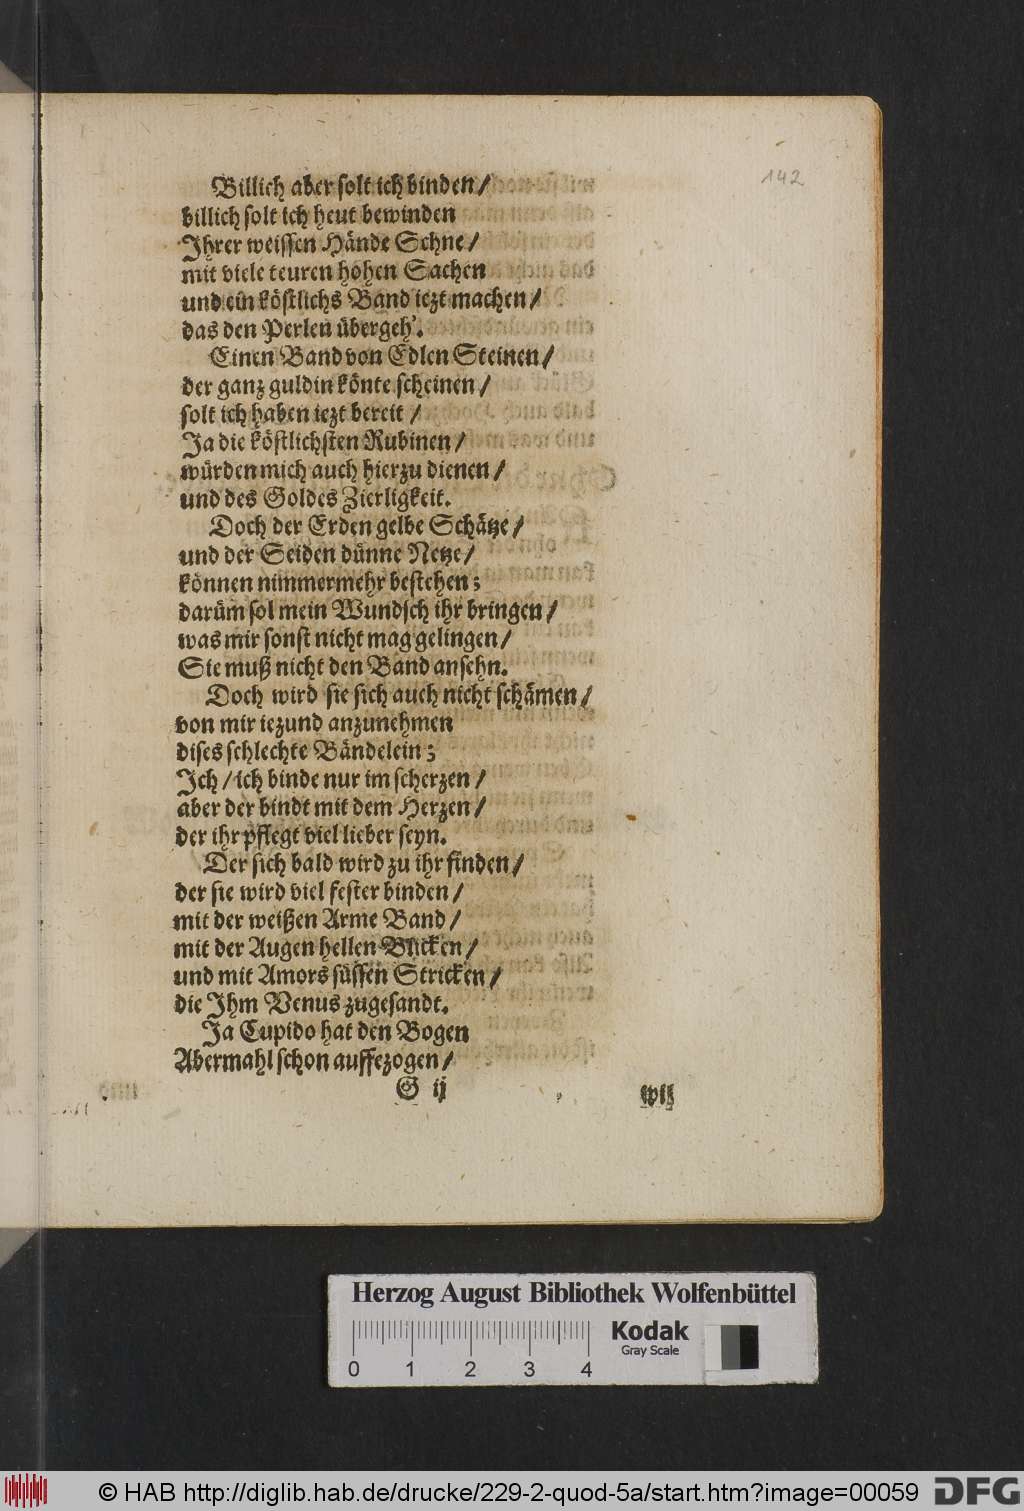 142
Billich aber solt ich binden/
billich solt ich heut bewinden
Ihrer weissen Hände Schne/
mit viele teuren hohen Sachen
und ein köstlichs Band iezt machen/
das den Perlen übergeh'.
Einen Band von Edlen Steinen/
der ganz guldin könte scheinen/
solt ich haben iezt bereit/
Ja die köstlichsten Rubinen/
würden mich auch hierzu dienen/
und des Goldes Zierligkeit.
Doch der Erden gelbe Schätze/
und der Seiden dünne Netze/
können nimmermehr bestehen;
darüm sol mein Wundsch ihr bringen/
was mir sonst nicht mag gelingen/
Sie muß nicht den Band ansehn.
Doch wird sie sich auch nicht schämen/
von mir iezund anzunehmen
dises schlechte Bändelein;
Ich/ich binde nur im scherzen/
aber der bindt mit dem Herzen/
der ihr pflegt viel lieber seyn.
Der sich bald wird zu ihr finden/
der sie wird viel fester binden/
mit der weißen Arme Band/
mit der Augen hellen Blicken/
und mit Amors süssen Stricken/
die Ihm Venus zugesandt.
Ja Cupido hat den Bogen
Abermahl schon auffezogen/
G ij
wil
Herzog August Bibliothek Wolfenbüttel
Kodak
Gray Scale
0 1 2 3 4
© HAB http://diglib.hab.de/drucke/229-2-quod-5a/start.htm?image=00059
DFG